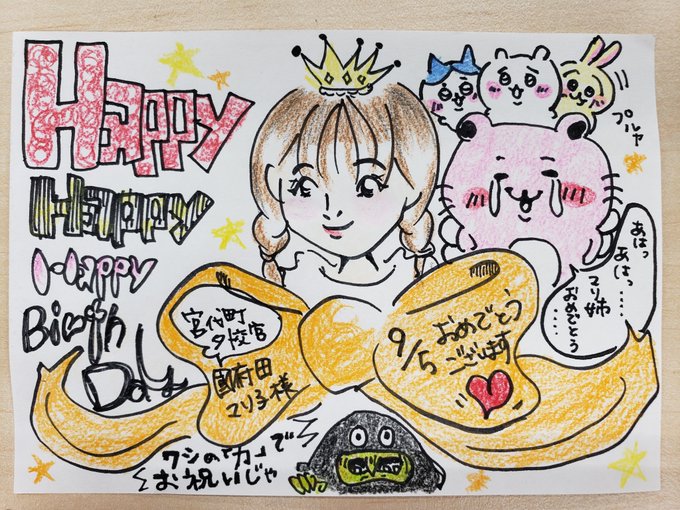 Happy
Happy
Happy
Birth
Day
プルャ
あはっ
あはっ……
マリ姉
おめでとう……
宮代町
國府田
マリ子様
9/5
おめでとう
ございます
ワシの「力」で
お祝いじゃ